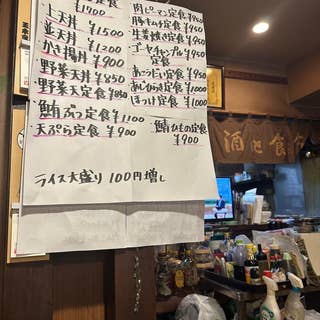 定食
¥1700
上天丼 ¥1500
並天丼 ¥1200
かき揚丼 ¥900
野菜天丼 ¥850
野菜天定食 ¥850
鮪ぶつ定食 ¥1100
天ぷら定食 ¥900
肉ピーマン定食 ¥950
豚キムチ定食 ¥950
生姜焼き定食 ¥950
ゴーヤチャンプル定食 ¥950
あこうだい定食 ¥950
あじひらき定食 ¥1000
ほっけ定食 ¥1000
定食
¥900
ライス大盛り 100円増し
酒と食